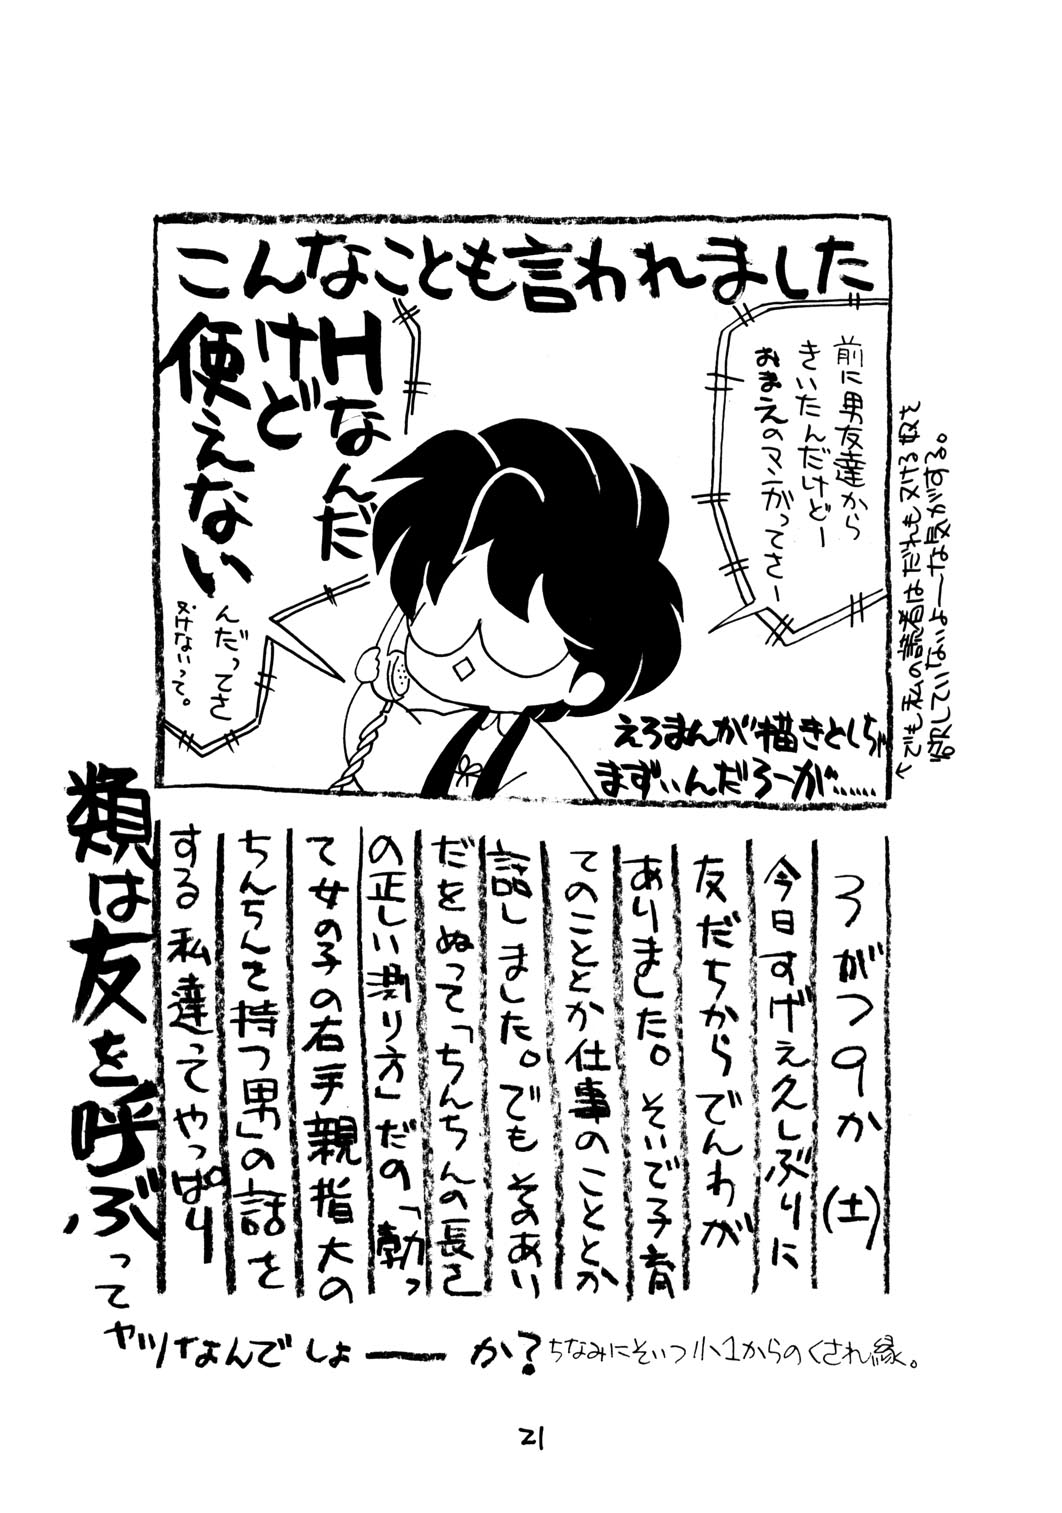 こんなことも言われました
前に男友達から
きいたんだけどー
おまえのマンガってさー
Hなんだ
けど
使えない
んだってさ
ヌけないって。
えろまんが描きとしちゃ
まずいんだろーが……
←でも私の読者はだれもヌける奴を
欲していないよーな気がする。
3がつ9か(土)
今日すげえ久しぶりに
友だちからでんわが
ありました。そいで子育
てのこととか仕事のこととか
話しました。でもそのあい
だをぬって「ちんちんの長さ
の正しい測り方」だの、「勃っ
て女の子の右手親指大の
ちんちんを持つ男」の話を
する私達ってやっぱり
類は友を呼ぶって
ヤツなんでしょーか?
ちなみにそいつ小1からのくされ縁。
21